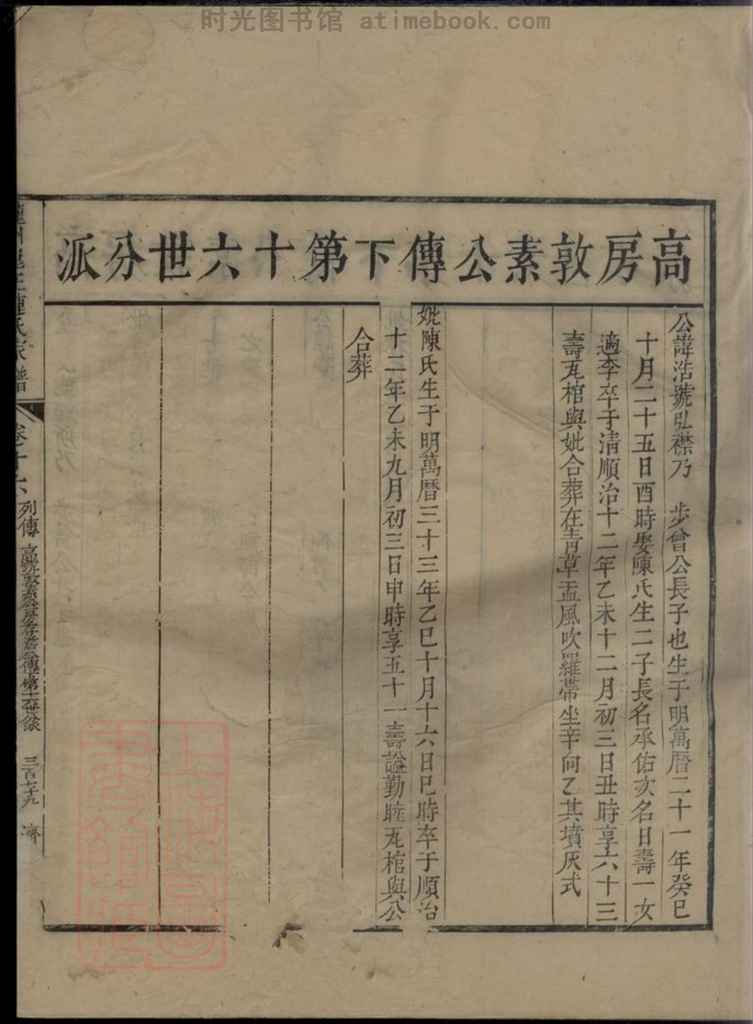 时光图书馆 atimebook.com
高房敦素公傳下第十六世分派
公諱浩號弘襟乃 步曾公長子也生于明萬曆二十一年癸巳
十月二十五日酉時娶陳氏生二子長名承佑次名日壽一女
適李卒于清順治十二年乙未十二月初三日丑時享六十三
壽瓦棺與妣合葬在青草盂風吹羅帶坐辛向乙其墳灰式
妣陳氏生于明萬曆三十三年乙巳十月十六日巳時卒于順治
十二年乙未九月初三日申時享五十一壽謚勤睦瓦棺與公
合葬
連氏家譜
卷十六
列傳
三百七十九
濟